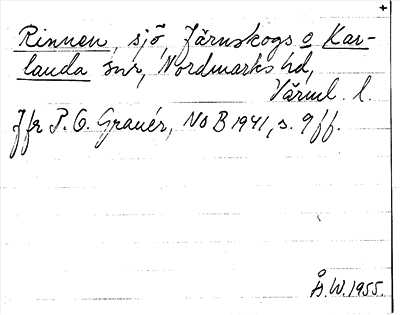 Rinnen, sjö, Järnskogs o Kar-
landa snr, Nordmarks hd,
Värml. l.
Jfr P. O. Granér, NoB 1941, s. 9 ff.
Å. W. 1955.